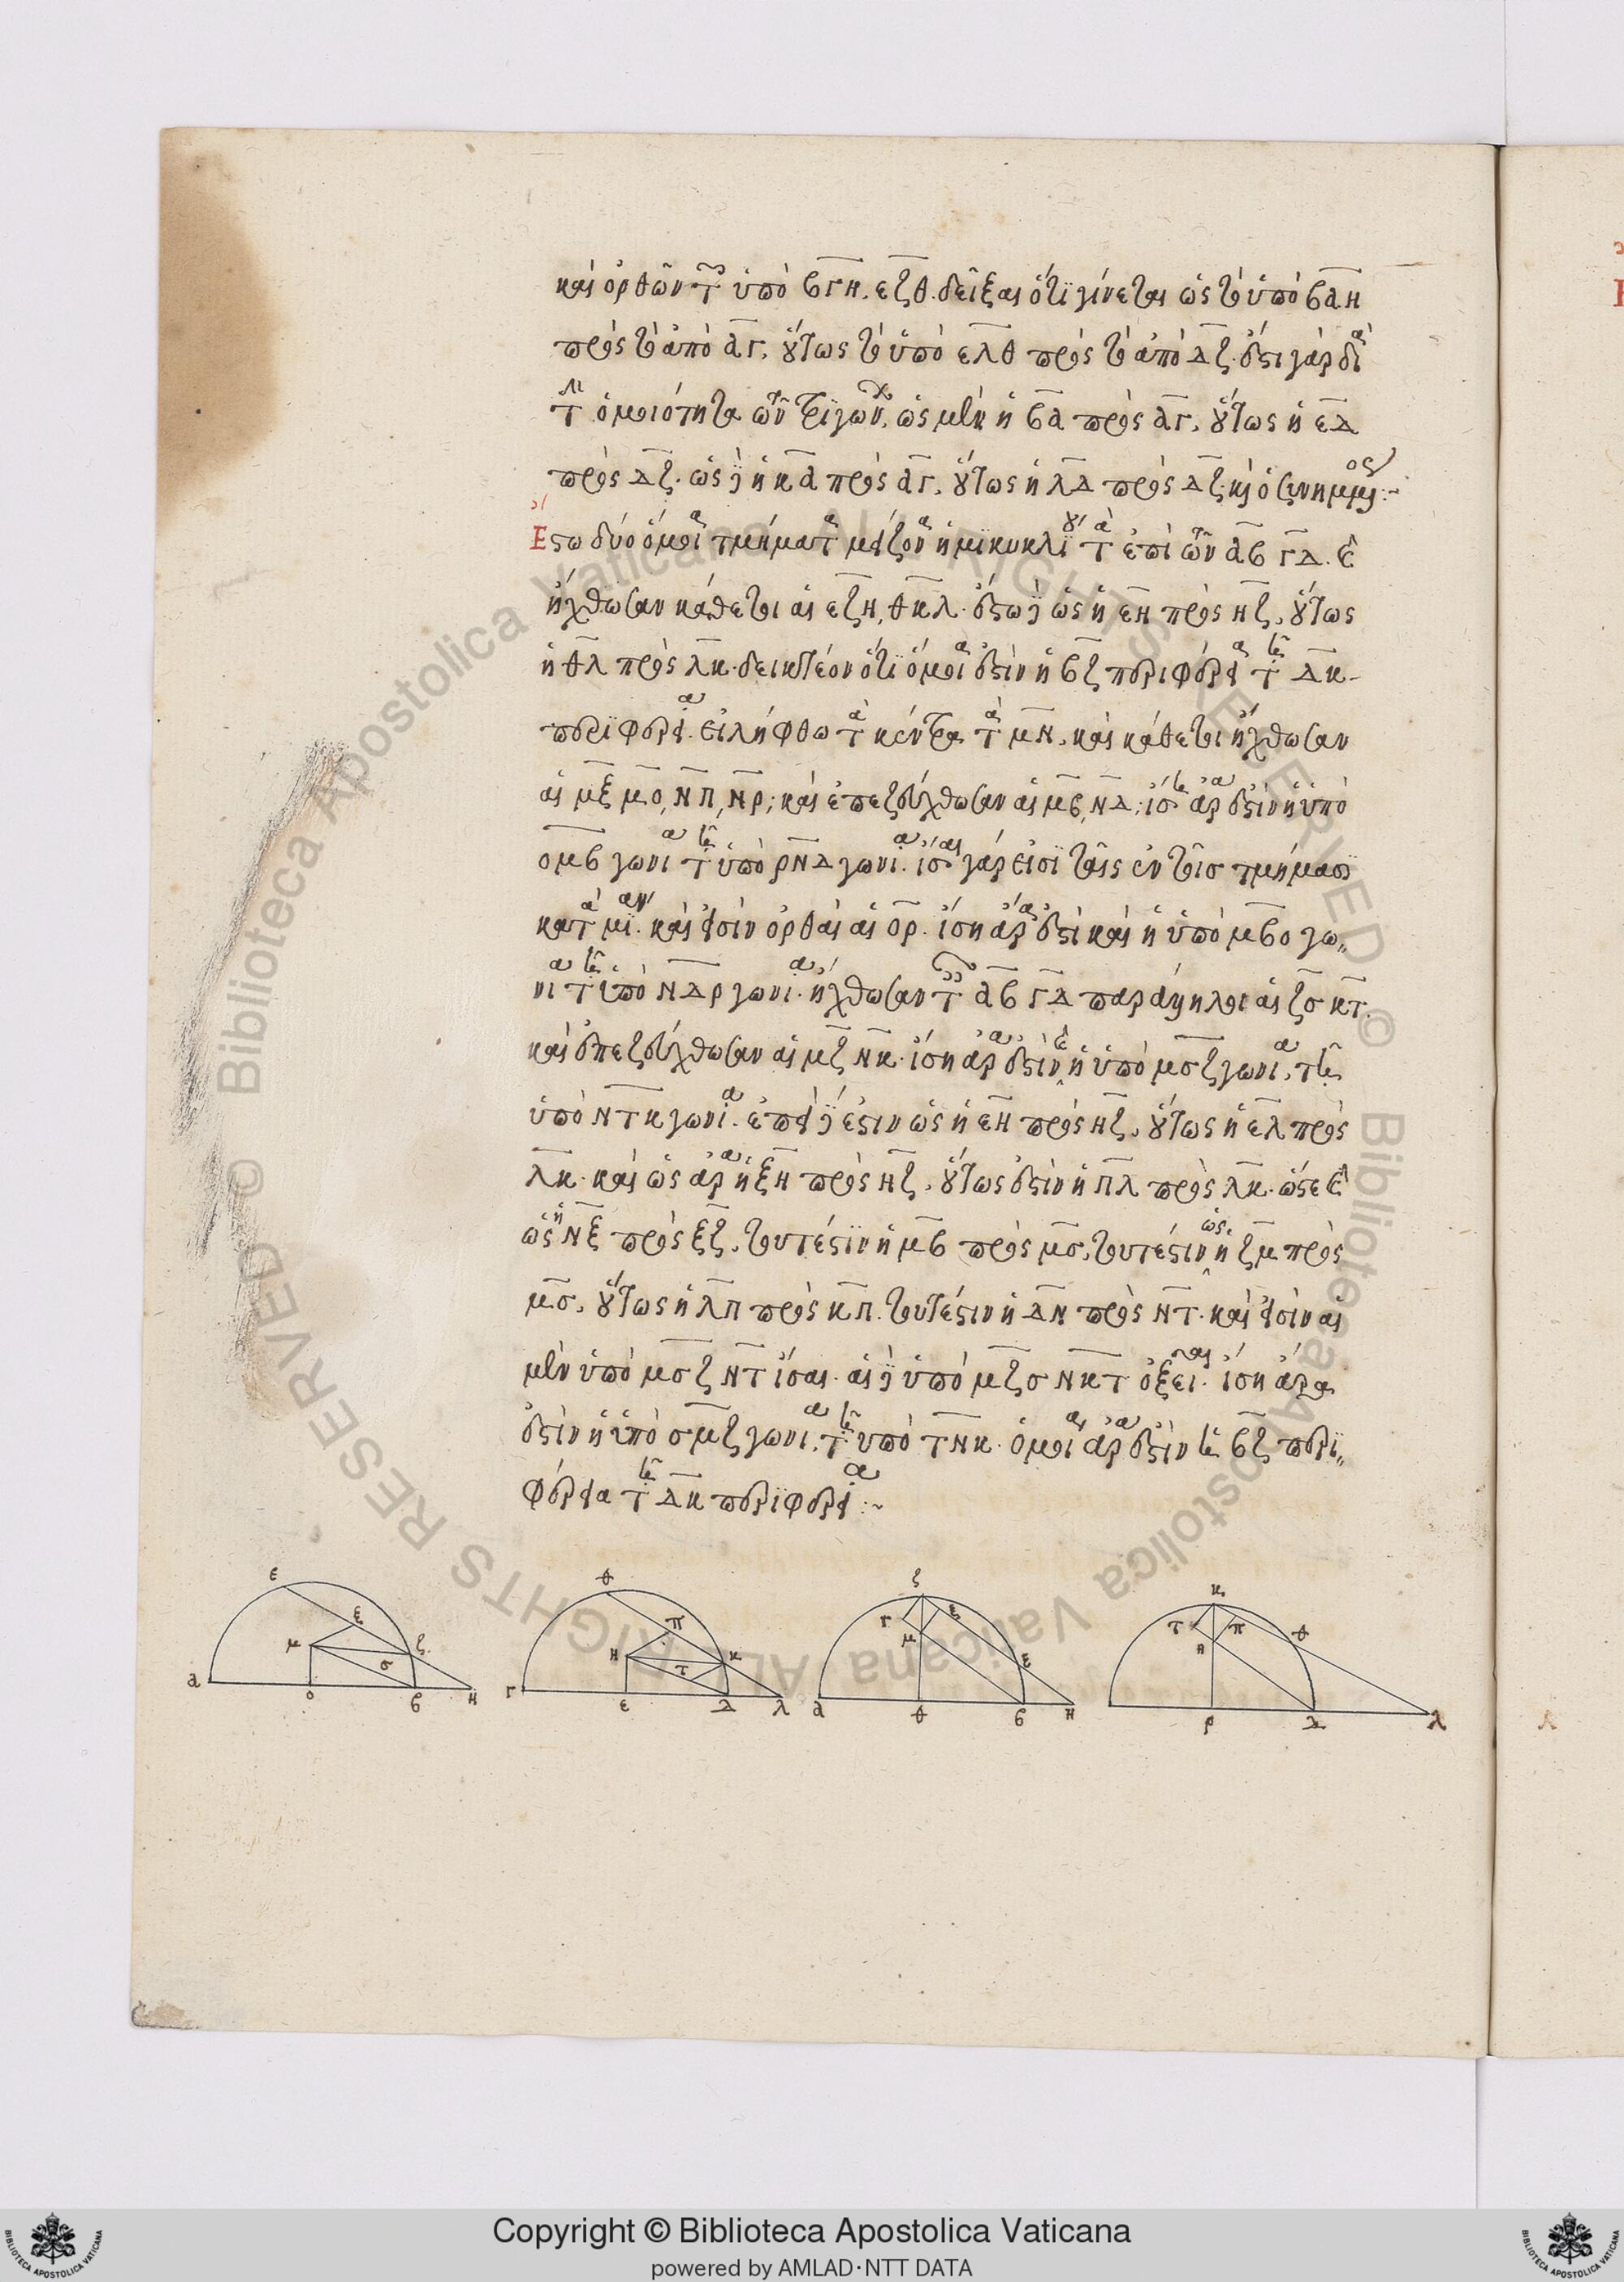 καὶ ὀρθῶν τῶν ὑπὸ βγη, εζθ. δεῖξαι ὅτι γίνεται ὡς τὸ ὑπὸ βαη
πρὸς τὸ ἀπὸ αγ, οὕτως τὸ ὑπὸ ελθ πρὸς τὸ ἀπὸ δζ. ἔστι γὰρ διὰ
τὴν ὁμοιότητα τῶν τριγώνων, ὡς μὲν ἡ βα πρὸς αγ, οὕτως ἡ εδ
πρὸς δζ. ὡς δὲ ἡ κα πρὸς αγ, οὕτως ἡ λδ πρὸς δζ. καὶ ὁ συνημμένος :-
Ἔστω δύο ὅμοια τμήματα μείζονα ἡμικυκλίου τὰ ἐπὶ τῶν αβ γδ. καὶ
ἤχθωσαν κάθετοι αἱ εζη, θκλ. ἔστω δὲ ὡς ἡ εη πρὸς ηζ, οὕτως
ἡ θλ πρὸς λκ. δεικτέον ὅτι ὁμοία ἐστὶν ἡ βζ περιφέρεια τῇ δκ
περιφερείᾳ. εἰλήφθω τὰ κέντρα τὰ μν, καὶ κάθετοι ἤχθωσαν
αἱ μξ μο, νπ, νρ, καὶ ἐπεζεύχθωσαν αἱ μβ, νδ. ἴση ἄρα ἐστὶν ἡ ὑπὸ
ομβ γωνία τῇ ὑπὸ ρνδ γωνίᾳ. ἴσαι γάρ εἰσι ταῖς ἐν τοῖς τμήμασι
κατὰ μίαν. καὶ εἰσὶν ὀρθαὶ αἱ ορ. ἴση ἄρα ἐστὶ καὶ ἡ ὑπὸ μβο γω
νία τῇ ὑπὸ νδρ γωνίᾳ. ἤχθωσαν αβ γδ παράλληλοι αἱ ζσ κτ.
καὶ ἐπεζεύχθωσαν αἱ μζ νκ. ἴση ἄρα ἐστὶν καὶ ἡ ὑπὸ μσζ γωνία, τῇ
ὑπὸ ντκ γωνίᾳ. ἐπεὶ δέ ἐστιν ὡς ἡ εη πρὸς ηζ, οὕτως ἡ ελ πρὸς
λκ. καὶ ὡς ἄρα ἡ ξη πρὸς ηζ, οὕτως ἐστὶν ἡ πλ πρὸς λκ. ὥστε καὶ
ὡς ἡ νξ πρὸς ξζ, τουτέστιν ἡ μβ πρὸς μσ, τουτέστιν ὡς ἡ ζμ πρὸς
μσ, οὕτως ἡ λπ πρὸς κπ. τουτέστιν ἡ δν πρὸς ντ. καὶ εἰσὶν αἱ
μὲν ὑπὸ μσζ ντ ἴσαι. αἱ δὲ ὑπὸ μζσ νκτ ὀξεῖαι. ἴση ἄρα
ἐστὶν ἡ ὑπὸ σμζ γωνία, τῇ ὑπὸ τνκ. ὁμοία ἄρα ἐστὶν ἡ βζ περι
φέρεια τῇ δκ περιφερείᾳ :~
ε ξ μ ζ σ α ο β η
θ π η κ τ γ ε δ λ
ζ γ ξ μ ε α θ β η
κ τ π θ η ρ δ λ
Copyright © Biblioteca Apostolica Vaticana
powered by AMLAD·NTT DATA
© Biblioteca Apostolica Vaticana ALL RIGHTS RESERVED © Biblioteca Apostolica Vaticana ALL RIGHTS RESERVED
BIBLIOTECA APOSTOLICA VATICANA
BIBLIOTECA APOSTOLICA VATICANA